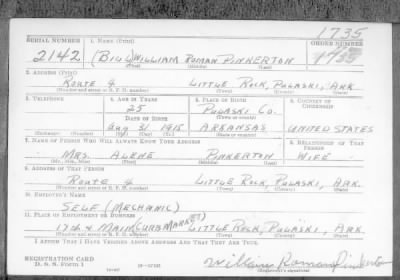 1735
SERIAL NUMBER 1. NAME (Print) ORDER NUMBER
2142 (BILL) WILLIAM ROMAN PINKERTON 1735
(First) (Middle) (Last)
2. ADDRESS (Print)
ROUTE 4 LITTLE ROCK, PULASKI, ARK
(Number and street or R. F. D. number) (Town) (County) (State)
3. TELEPHONE 4. AGE IN YEARS 5. PLACE OF BIRTH 6. COUNTRY OF CITIZENSHIP
25 PULASKI CO.
DATE OF BIRTH (Town or county)
Aug 31 1915 ARKANSAS UNITED STATES
(Exchange) (Number) (Mo.) (Day) (Yr.) (State or country)
7. NAME OF PERSON WHO WILL ALWAYS KNOW YOUR ADDRESS 8. RELATIONSHIP OF THAT PERSON
MRS. PINKERTON WIFE
(Mr., Mrs., Miss) (First) (Middle) (Last)
9. ADDRESS OF THAT PERSON
ROUTE 4 LITTLE ROCK, PULASKI, ARK.
(Number and street or R. F. D. number) (Town) (County) (State)
10. EMPLOYER'S NAME
SELF (MECHANIC)
11. PLACE OF EMPLOYMENT OR BUSINESS
17th & MAIN (CURB MARKET) LITTLE ROCK, PULASKI, ARK.
(Number and street or R. F. D. number) (Town) (County) (State)
I AFFIRM THAT I HAVE VERIFIED ABOVE ANSWERS AND THAT THEY ARE TRUE.
REGISTRATION CARD
D. S. S. Form 1 William Roman Pinkerton
(Registrant's signature)